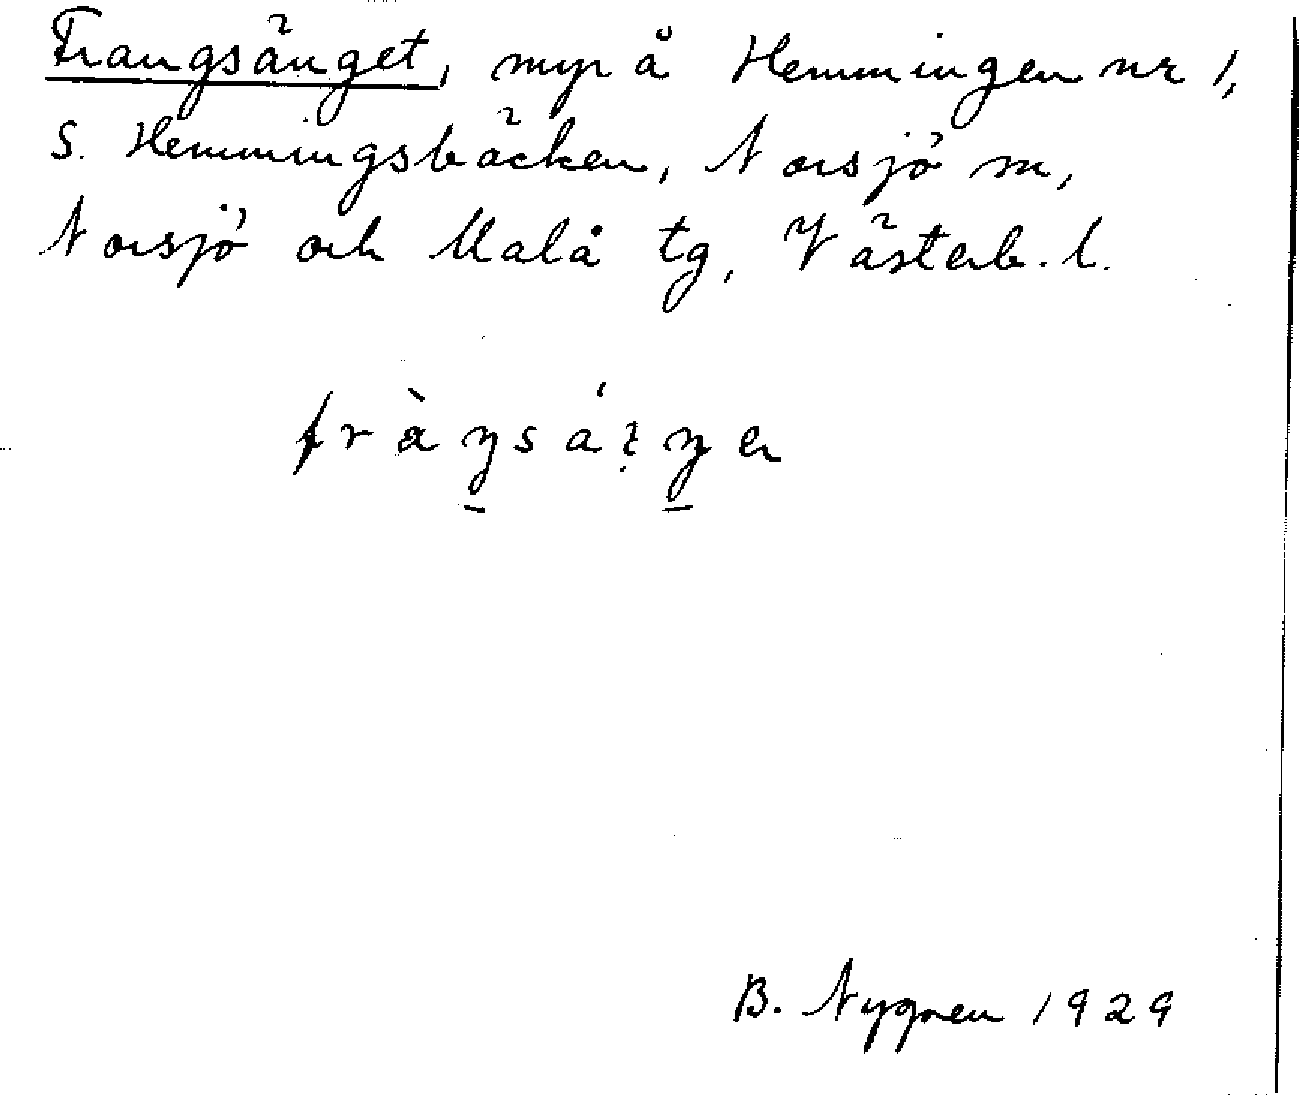 Frangsänget, myr å Hemmingen nr 1,
S. Hemmingsbäcken, Norsjö sn,
Norsjö och Malå tg, Västerb. l.
B. Nygren 1929